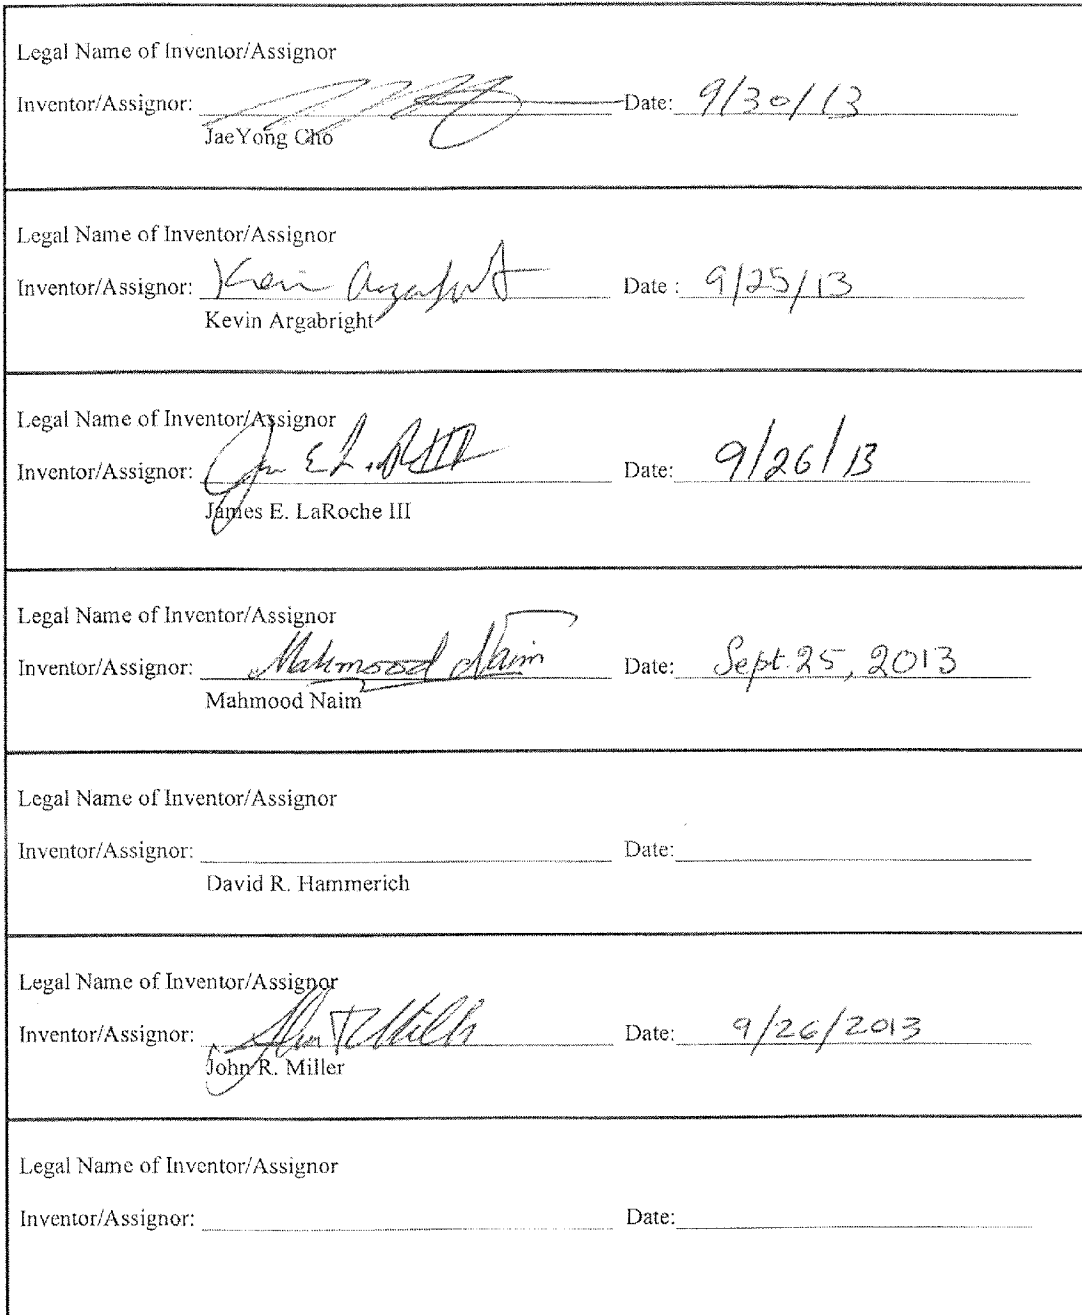 Legal Name of Inventor/Assignor
Inventor/Assignor: Date: 9/30/13
JaeYong Cho
Legal Name of Inventor/Assignor
Inventor/Assignor: Kevin Argabright Date : 9/25/13
Kevin Argabright
Legal Name of Inventor/Assignor
Inventor/Assignor: Date: 9/26/13
James E. LaRoche III
Legal Name of Inventor/Assignor
Inventor/Assignor: Mahmood Naim Date: Sept. 25, 2013
Mahmood Naim
Legal Name of Inventor/Assignor
Inventor/Assignor: Date:
David R. Hammerich
Legal Name of Inventor/Assignor
Inventor/Assignor: John R Miller Date: 9/26/2013
John R. Miller
Legal Name of Inventor/Assignor
Inventor/Assignor: Date: